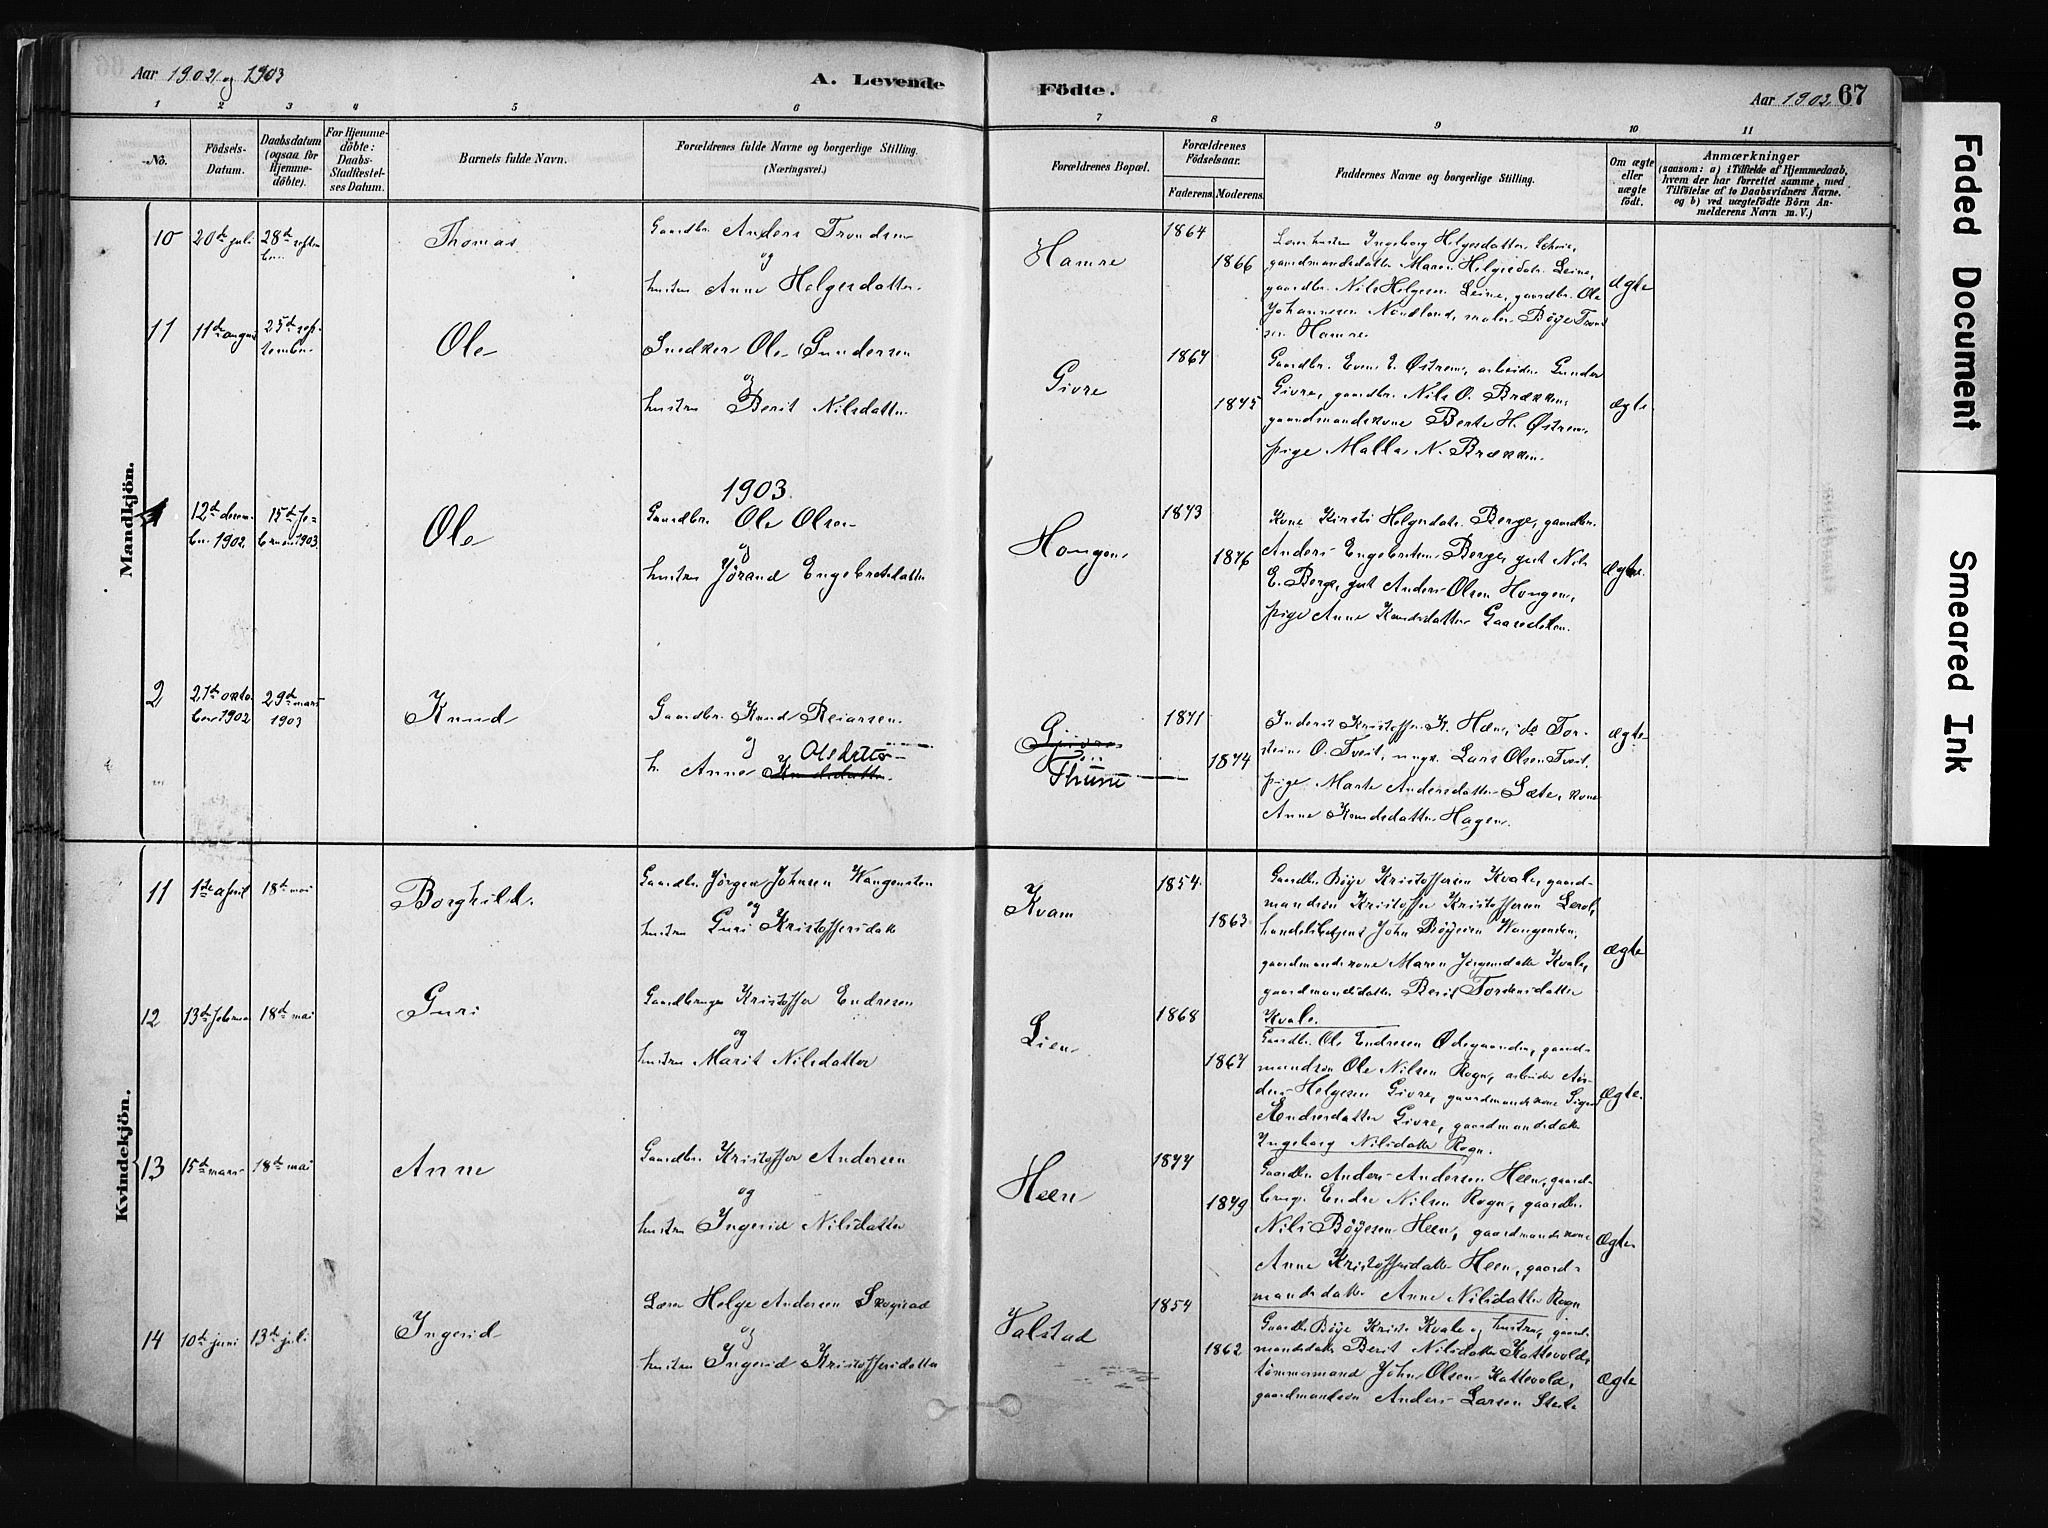 Aar 1902 og 1903
A. Levende
Födte.
Aar 1903. 67
1 2 3 4 5 6 7 8 9 10 11
No.
Födsels-
Datum.
Daabsdatum
(ogsaa for
Hjemme-
döbte).
For Hjemme-
döbte:
Daabs-
Stadfæstel-
ses Datum.
Barnets fulde Navn.
Forældrenes fulde Navne og borgerlige Stilling.
(Næringsvei.)
Forældrenes Bopæl.
Forældrenes
Födselsaar.
Faderens.
Moderens.
Faddernes Navne og borgerlige Stilling.
Om ægte
eller
uægte
födt.
Anmærkninger
(saasom: a) i Tilfælde af Hjemmedaab,
hvem der har forrettet samme, med
Tilföielse af to Daabsvidners Navne.
og b) ved uægtefödte Börn An-
melderens Navn m. V.)
Mandkjön.
10
20de juli
28de septem
ber
Thomas
Gaardbr. Anders Trondsen
og
hustru Anne Helgesdatter.
Hamre
1864
1866
Ingeborg Helgesdatter
gaardmandsdatter Maren Helgesdatr. Leine,
gaardbr. Nils Helgesen Leine, gaardbr. Ole
Johannesen Nordland, maler Böye Trond
sen Hamre.
ægte
11
11de august
25de sep-
tember
Ole
Snedker Ole Gundersen
og
hustru Berit Nilsdatter
Givre
1867
1875
Gaardbr. Even E. Østrem, arbeider Gunder
Givre, gaardbr. Nils O. Brækken,
gaardmandskone Berte H. Østrem,
pige Malla N. Brækken.
ægte
1903.
1
12te decem-
ber 1902.
15de fe-
bruar 1903.
Ole
Gaardbr. Ole Olsen
og
hustru Jörand Engebretsdatter
Hougen
1873
1876
Kone Kirsti Helgesdatr. Berge, gaardbr.
Anders Engebretsen Berge, gut Nils
E. Berge, gut Anders Olsen Hougen,
pige Anne Knudsdatter
ægte.
2
27de okto-
ber 1902
29de mars
1903
Knud
Gaardbr. Knud Reiarsen
og Olsdatter
h. Anne Knudsdatter.
Givre
Thune
1871
1874
Inderst Kristoffer K. Hæn, do Tor-
stein O. Tveit, ungk. Lars Olsen Tveit,
pige Marte Andersdatter Sæte, kone
Anne Knudsdatter Hagen.
ægte
Kvindekjön.
11
1ste april
18de mai
Borghild.
Gaardbr. Jörgen Johnsen Wangensten
og
hustru Guri Kristoffersdatter
Kvam
1854
1863
Gaardbr. Böye Kristoffersen Kvale, gaard-
mandsön Kristoffer Kristoffersen
handelsbetjent John Böyesen Wangensten,
gaardmandskone Maren Jörgensdatter Kvale,
gaardmandsdatter Berit Tordensdatter
Kvale.
ægte
12
13de februar
18de mai
Guri
Gaardbruger Kristoffer Endresen
og
hustru Marit Nilsdatter
Lien
1868
1867
Gaardbr. Ole Endresen Ødegaarden, gaard-
mandsön Ole Nilsen Rogn, arbeider An-
ders Helgesen Givre, gaardmandskone Sigrid
Andersdatter Givre, gaardmandsdatter
Ingeborg Nilsdatter Rogn.
ægte.
13
15de mars
18de mai
Anne
Gaardbr. Kristoffer Andersen
og
hustru Ingerid Nilsdatter
Heen
1877
1879
Gaardbr. Anders Andersen Heen, gaard-
brug. Endre Nilsen Rogn, gaardbr.
Nils Böyesen Heen, gaardmandskone
Anne Kristoffersdatter Heen, gaard-
mandsdatter Anne Nilsdatter Rogn
ægte
14
10de juni
13de juli
Ingerid
Lærer Helge Andersen Skogstad
og
hustru Ingerid Kristoffersdatter
Valstad
1854
1862
Gaardbr. Böye Krist. Kvale og hustru, gaard-
mandsdatter Berit Nilsdatter Kattevold,
tömmermand John Olsen Kattevold,
gaardmandsön Anders Larsen
ægte
Faded Document
Smeared Ink